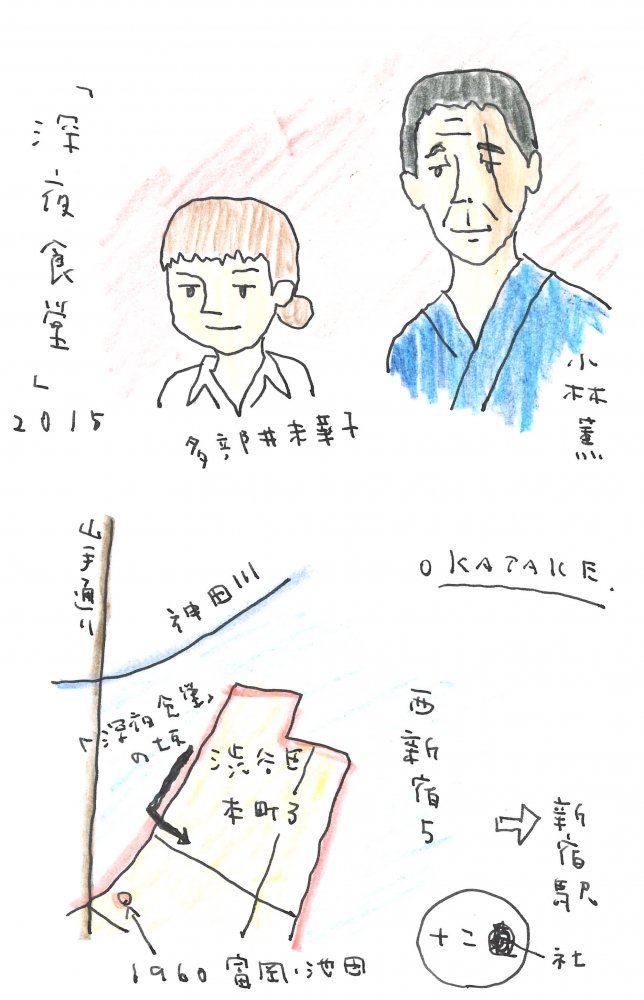 「深夜食堂」
2015
多部井未華子
小林薫
OKATAKE.
山手通り
神田川
「深夜食堂」
の坂
渋谷区
本町3
西新宿5
新宿駅
十二社
1960 富岡・池田